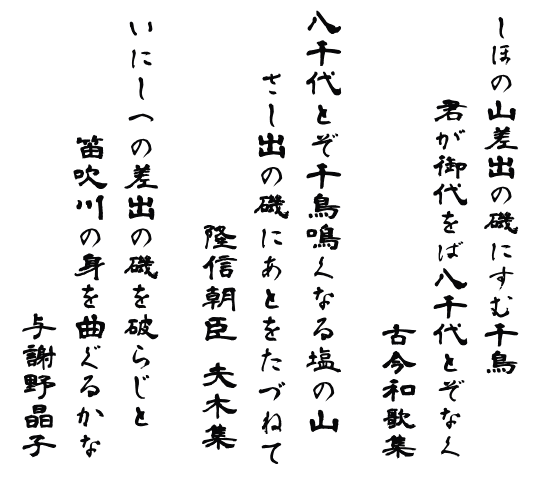 しほの山差出の磯にすむ千鳥
君が御代をば八千代とぞなく
古今和歌集
八千代とぞ千鳥鳴くなる塩の山
さし出の磯にあとをたづねて
隆信朝臣 夫木集
いにしへの差出の磯を破らじと
笛吹川の身を曲ぐるかな
与謝野晶子